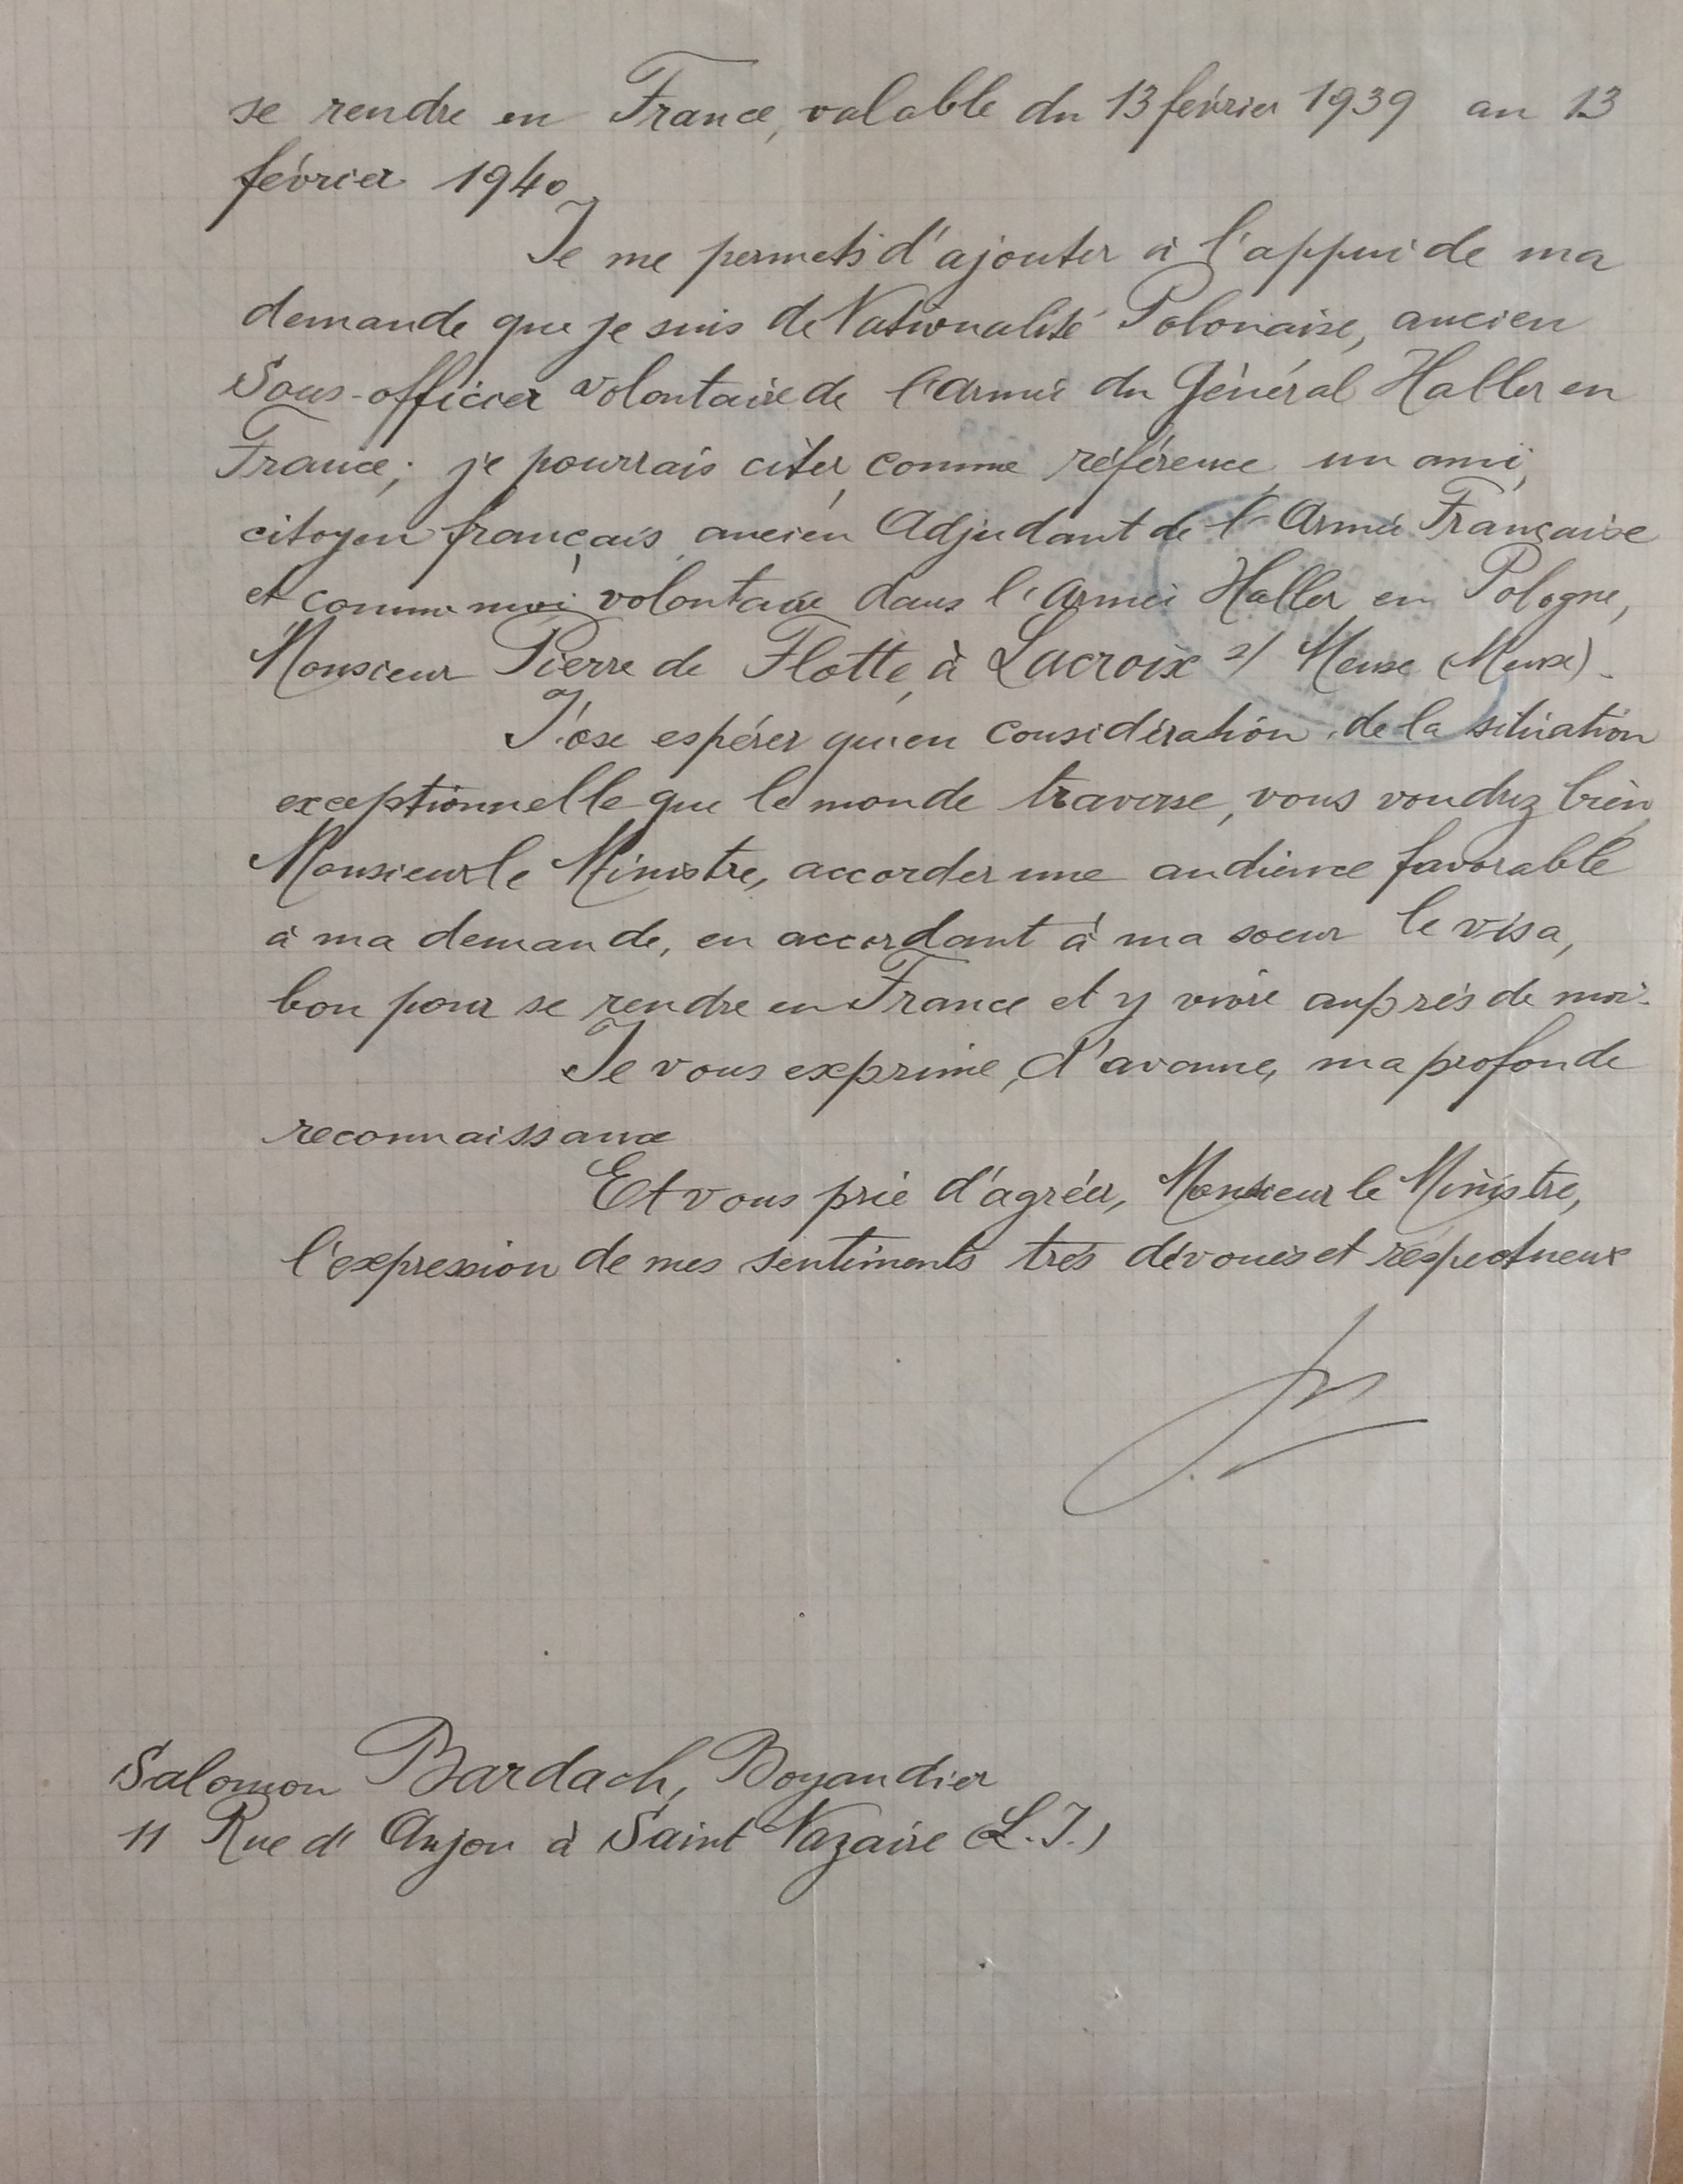 se rendre en France, valable du 13 février 1939 au 13
février 1940.
Je me permets d'ajouter à l'appui de ma
demande que je suis de Nationalité Polonaise, ancien
Sous-officier volontaire de l'Armée du Général Haller en
France; je pourrais citer, comme référence, un ami,
citoyen français, ancien Adjudant de l'Armée Française
et, comme moi, volontaire dans l'Armée Haller en Pologne,
Monsieur Pierre de Flotte, à Lacroix s/ Meuse (Meuse).
J'ose espérer qu'en considération de la situation
exceptionnelle que le monde traverse, vous voudrez bien,
Monsieur le Ministre, accorder une audience favorable
à ma demande, en accordant à ma soeur le visa,
bon pour se rendre en France et y vivre auprès de moi.
Je vous exprime, d'avance, ma profonde
reconnaissance
Et vous prie d'agréer, Monsieur le Ministre,
l'expression de mes sentiments très dévoués et respectueux
Salomon Bardach, Boyaudier
11 Rue d'Anjou à Saint Nazaire (L.I.)